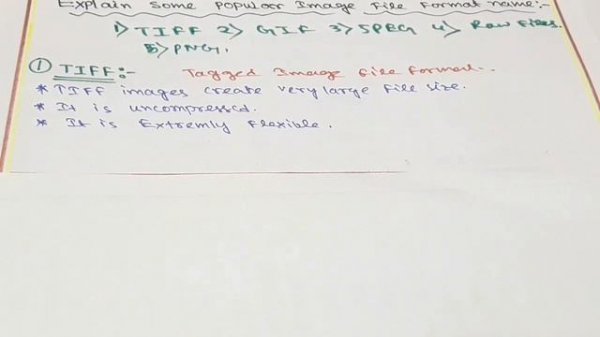 Explain Some Populer Image File Format name:-
1> TIFF 2> GIF 3> JPEG 4> Raw Files.
5> PNG.
① TIFF:- Tagged Image File Format.
* TIFF images create very large file size.
* It is uncompressed.
* It is Extremly Flexible.